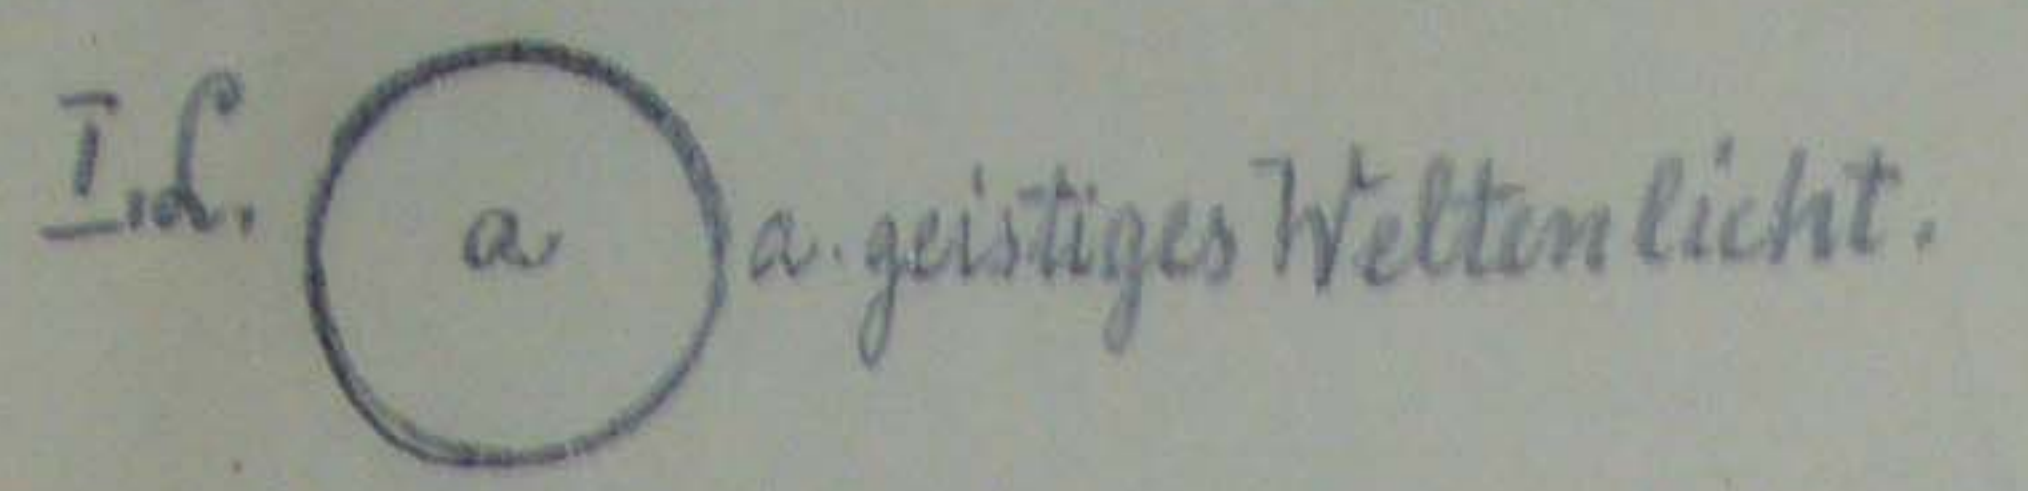 I. L. a a. geistiges Weltenlicht.